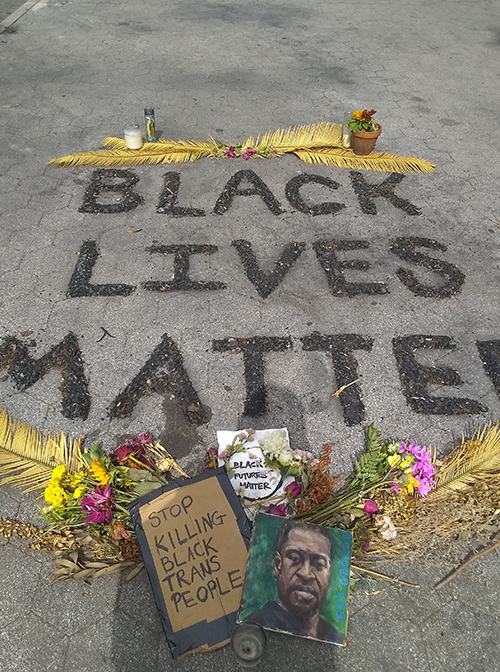 BLACK
LIVES
MATTE
BLACK
FUTURES
MATTER
STOP
KILLING
BLACK
TRANS
PEOPLE